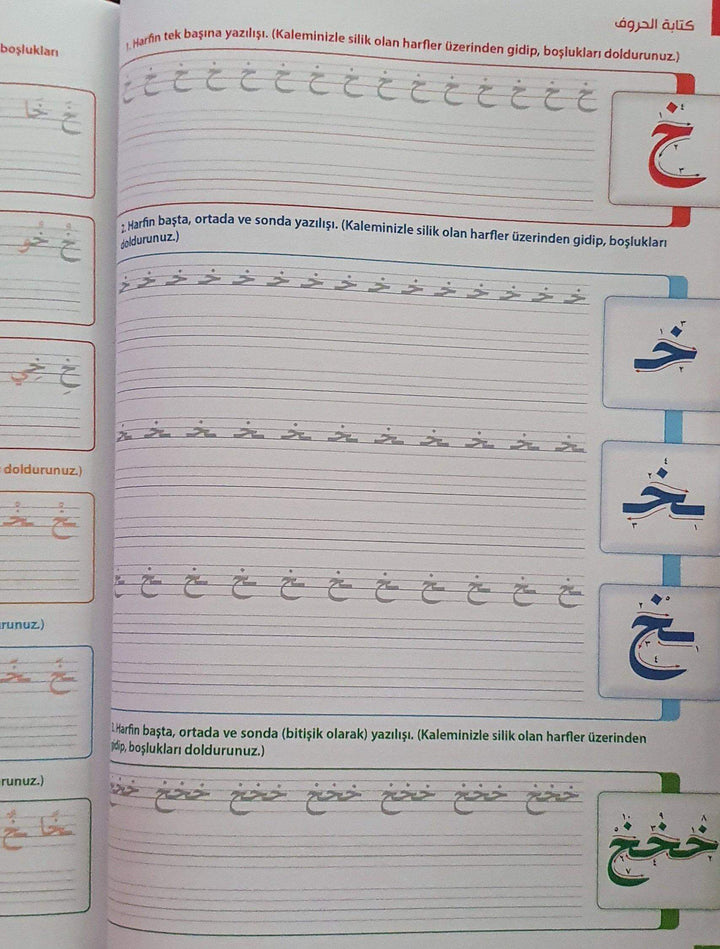 كتابة الحروف
1. Harfin tek başına yazılışı. (Kaleminizle silik olan harfler üzerinden gidip, boşlukları doldurunuz.)
خ خ خ خ خ خ خ خ خ خ خ خ خ خ خ
خ
2. Harfin başta, ortada ve sonda yazılışı. (Kaleminizle silik olan harfler üzerinden gidip, boşlukları
doldurunuz.)
خـ خـ خـ خـ خـ خـ خـ خـ خـ خـ خـ خـ خـ خـ خـ
خـ
ـخـ ـخـ ـخـ ـخـ ـخـ ـخـ ـخـ ـخـ ـخـ ـخـ ـخـ
ـخـ
ـخ ـخ ـخ ـخ ـخ ـخ ـخ ـخ ـخ ـخ ـخ
ـخ
3. Harfin başta, ortada ve sonda (bitişik olarak) yazılışı. (Kaleminizle silik olan harfler üzerinden
gidip, boşlukları doldurunuz.)
خخخ خخخ خخخ خخخ خخخ خخخ خخخ
خخخ
boşlukları
خَ خَا
خُ خُو
خِ خِي
doldurunuz.)
runuz.)
runuz.)